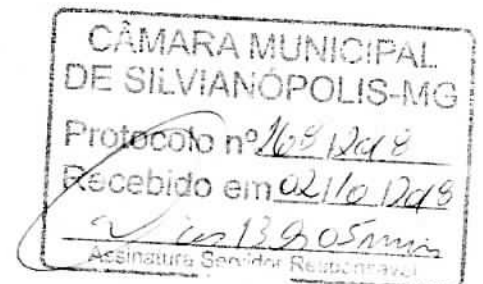 CÂMARA MUNICIPAL
DE SILVIANÓPOLIS-MG
Protocolo nº 268 / 2018
Recebido em 02/10/2018
13h05min
Assinatura Servidor Responsável